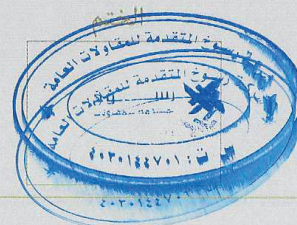 الختم
رسوخ المتقدمة للمقاولات العامة
رسوخ المتقدمة للمقاولات العامة
ت : ٤٠٣٠١٤٤٧٠١
٤٠٣٠١٤٤٧٠١